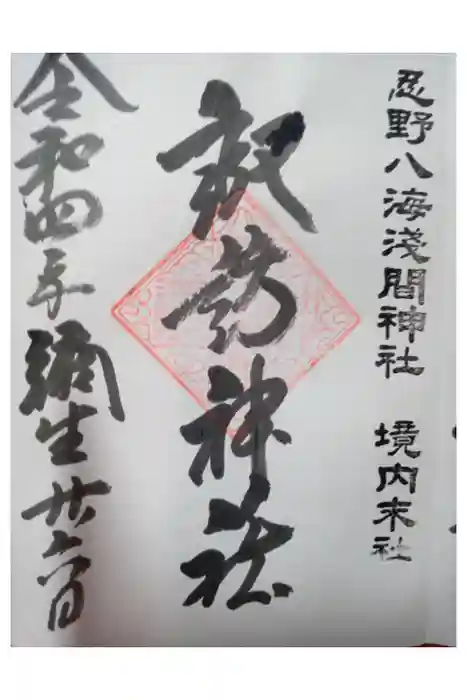 忍野八海淺間神社　境内末社
諏訪神社
令和四年彌生廿六日